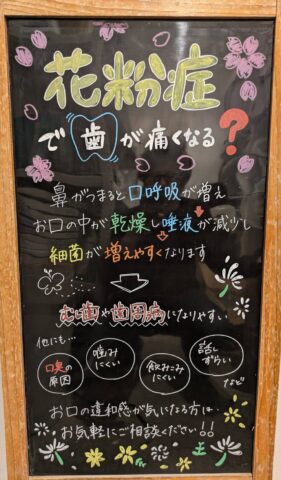 花粉症
で歯が痛くなる?
鼻がつまると口呼吸が増え
お口の中が乾燥し唾液が減少し
細菌が増えやすくなります
むし歯や歯周病になりやすい
他にも…
口臭の
原因
噛み
にくい
飲みこみ
にくい
話し
ずらい
など
お口の違和感が気になる方は、
お気軽にご相談ください!!